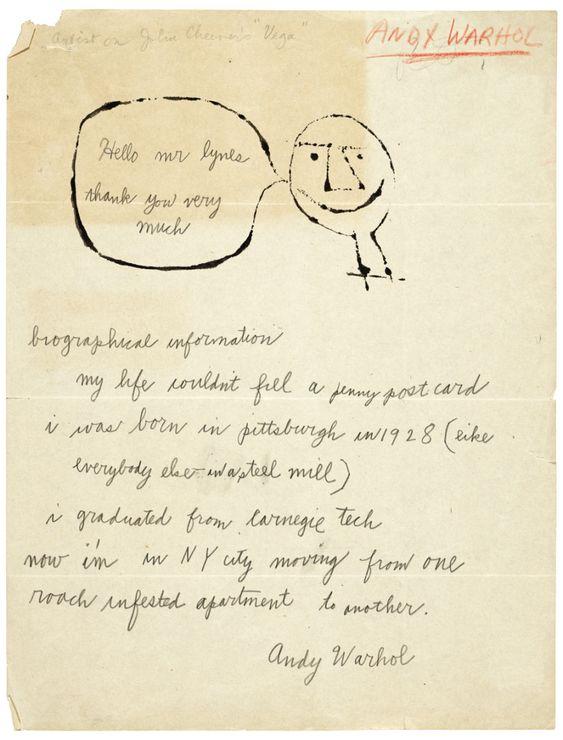 Artist on John Cheever's "Vega"
ANDY WARHOL
Hello mr lynes
thank you very
much
biographical information
my life wouldn't fill a penny post card
i was born in pittsburgh in 1928 (like
everybody else - in a steel mill)
i graduated from carnegie tech
now i'm in NY city moving from one
roach infested apartment to another.
Andy Warhol